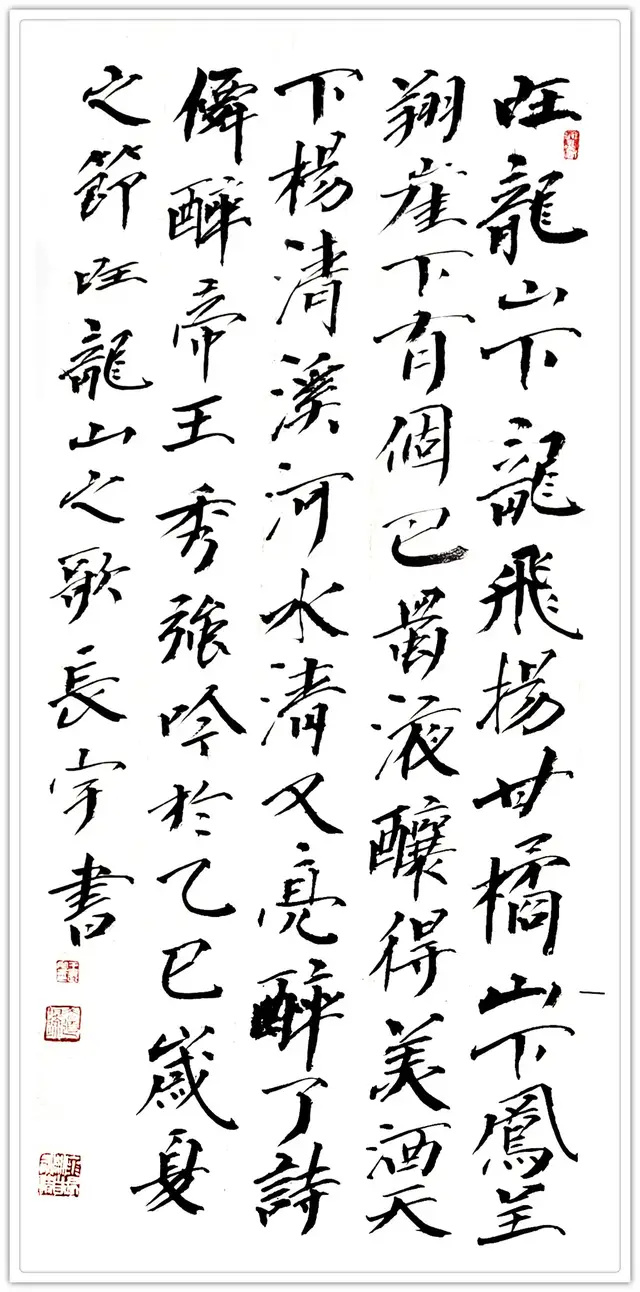 旺龍山下龍飛揚甘橘山下鳳呈
翔崖下有個巴蜀液釀得美酒天
下楊清溪河水清又亮醉了詩
僊醉帝王秀吟於乙巳歲夏
之節旺龍山之歌長宇書